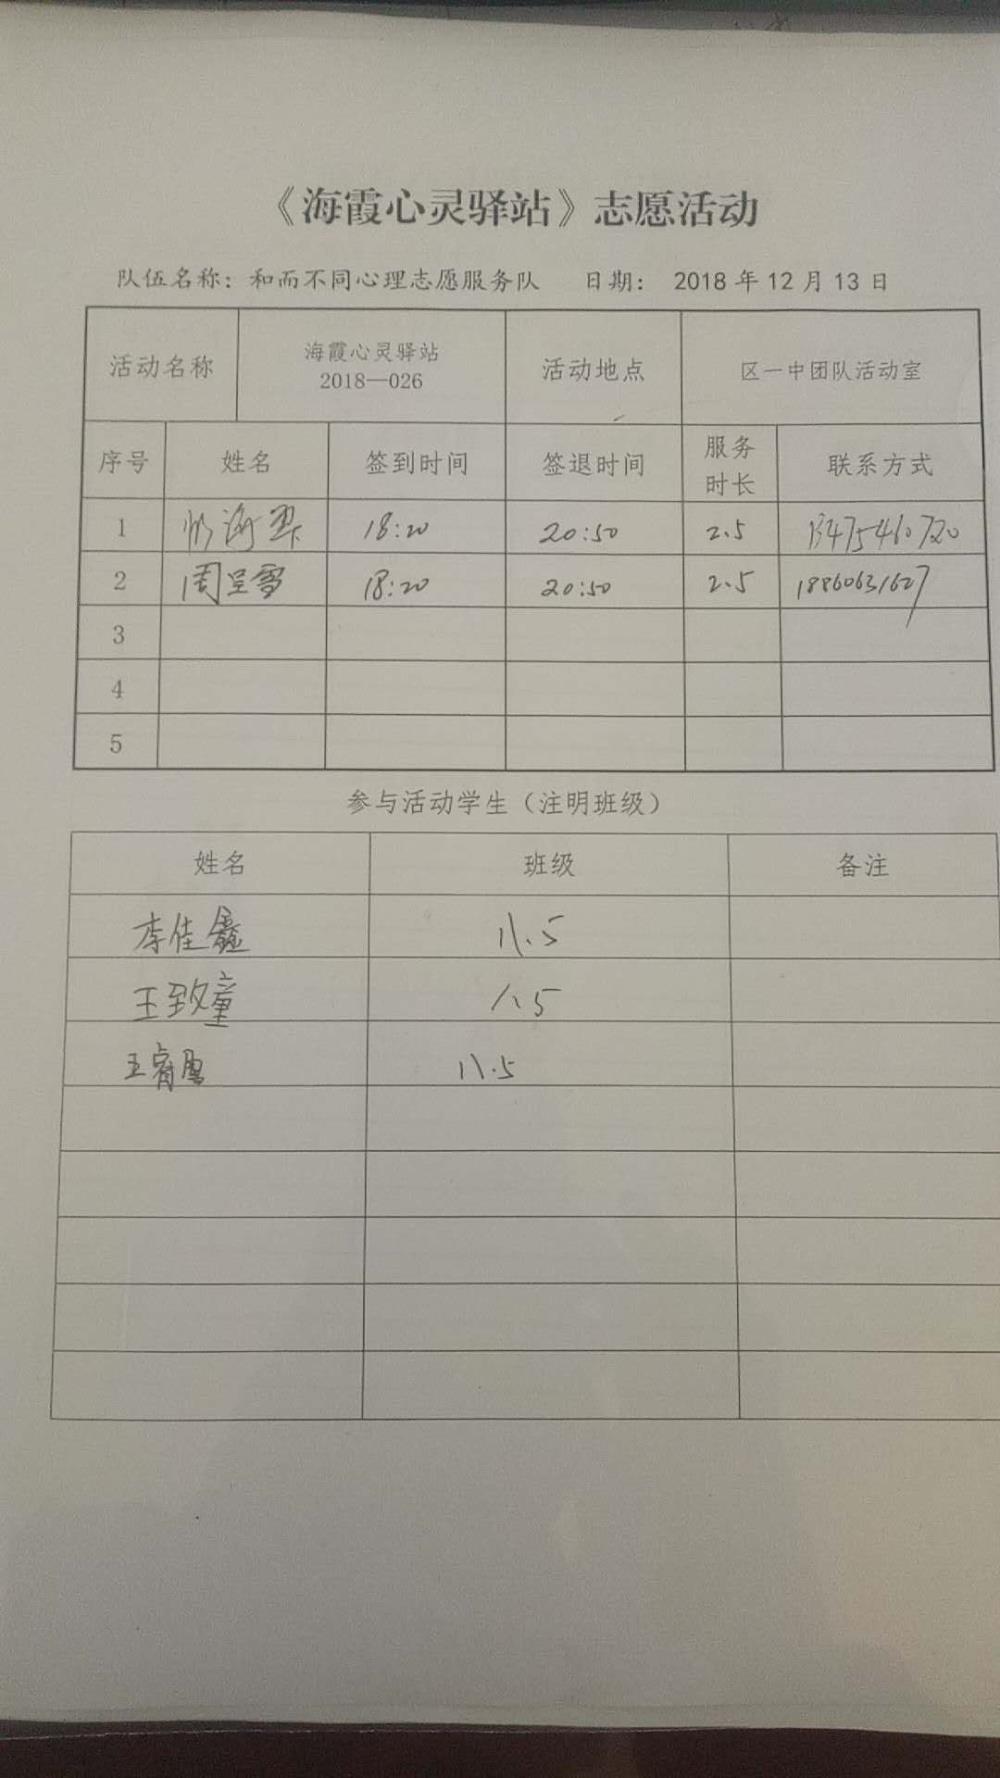 《海霞心灵驿站》志愿活动
队伍名称：和而不同心理志愿服务队 日期： 2018 年 12 月 13 日
活动名称 海霞心灵驿站 2018—026 活动地点 区一中团队活动室
序号 姓名 签到时间 签退时间 服务时长 联系方式
1 18:20 20:50 2.5 13475460720
2 周呈雪 18:20 20:50 2.5 18860631627
3
4
5
参与活动学生（注明班级）
姓名 班级 备注
李佳鑫 八.5
王致童 八.5
王睿 八.5